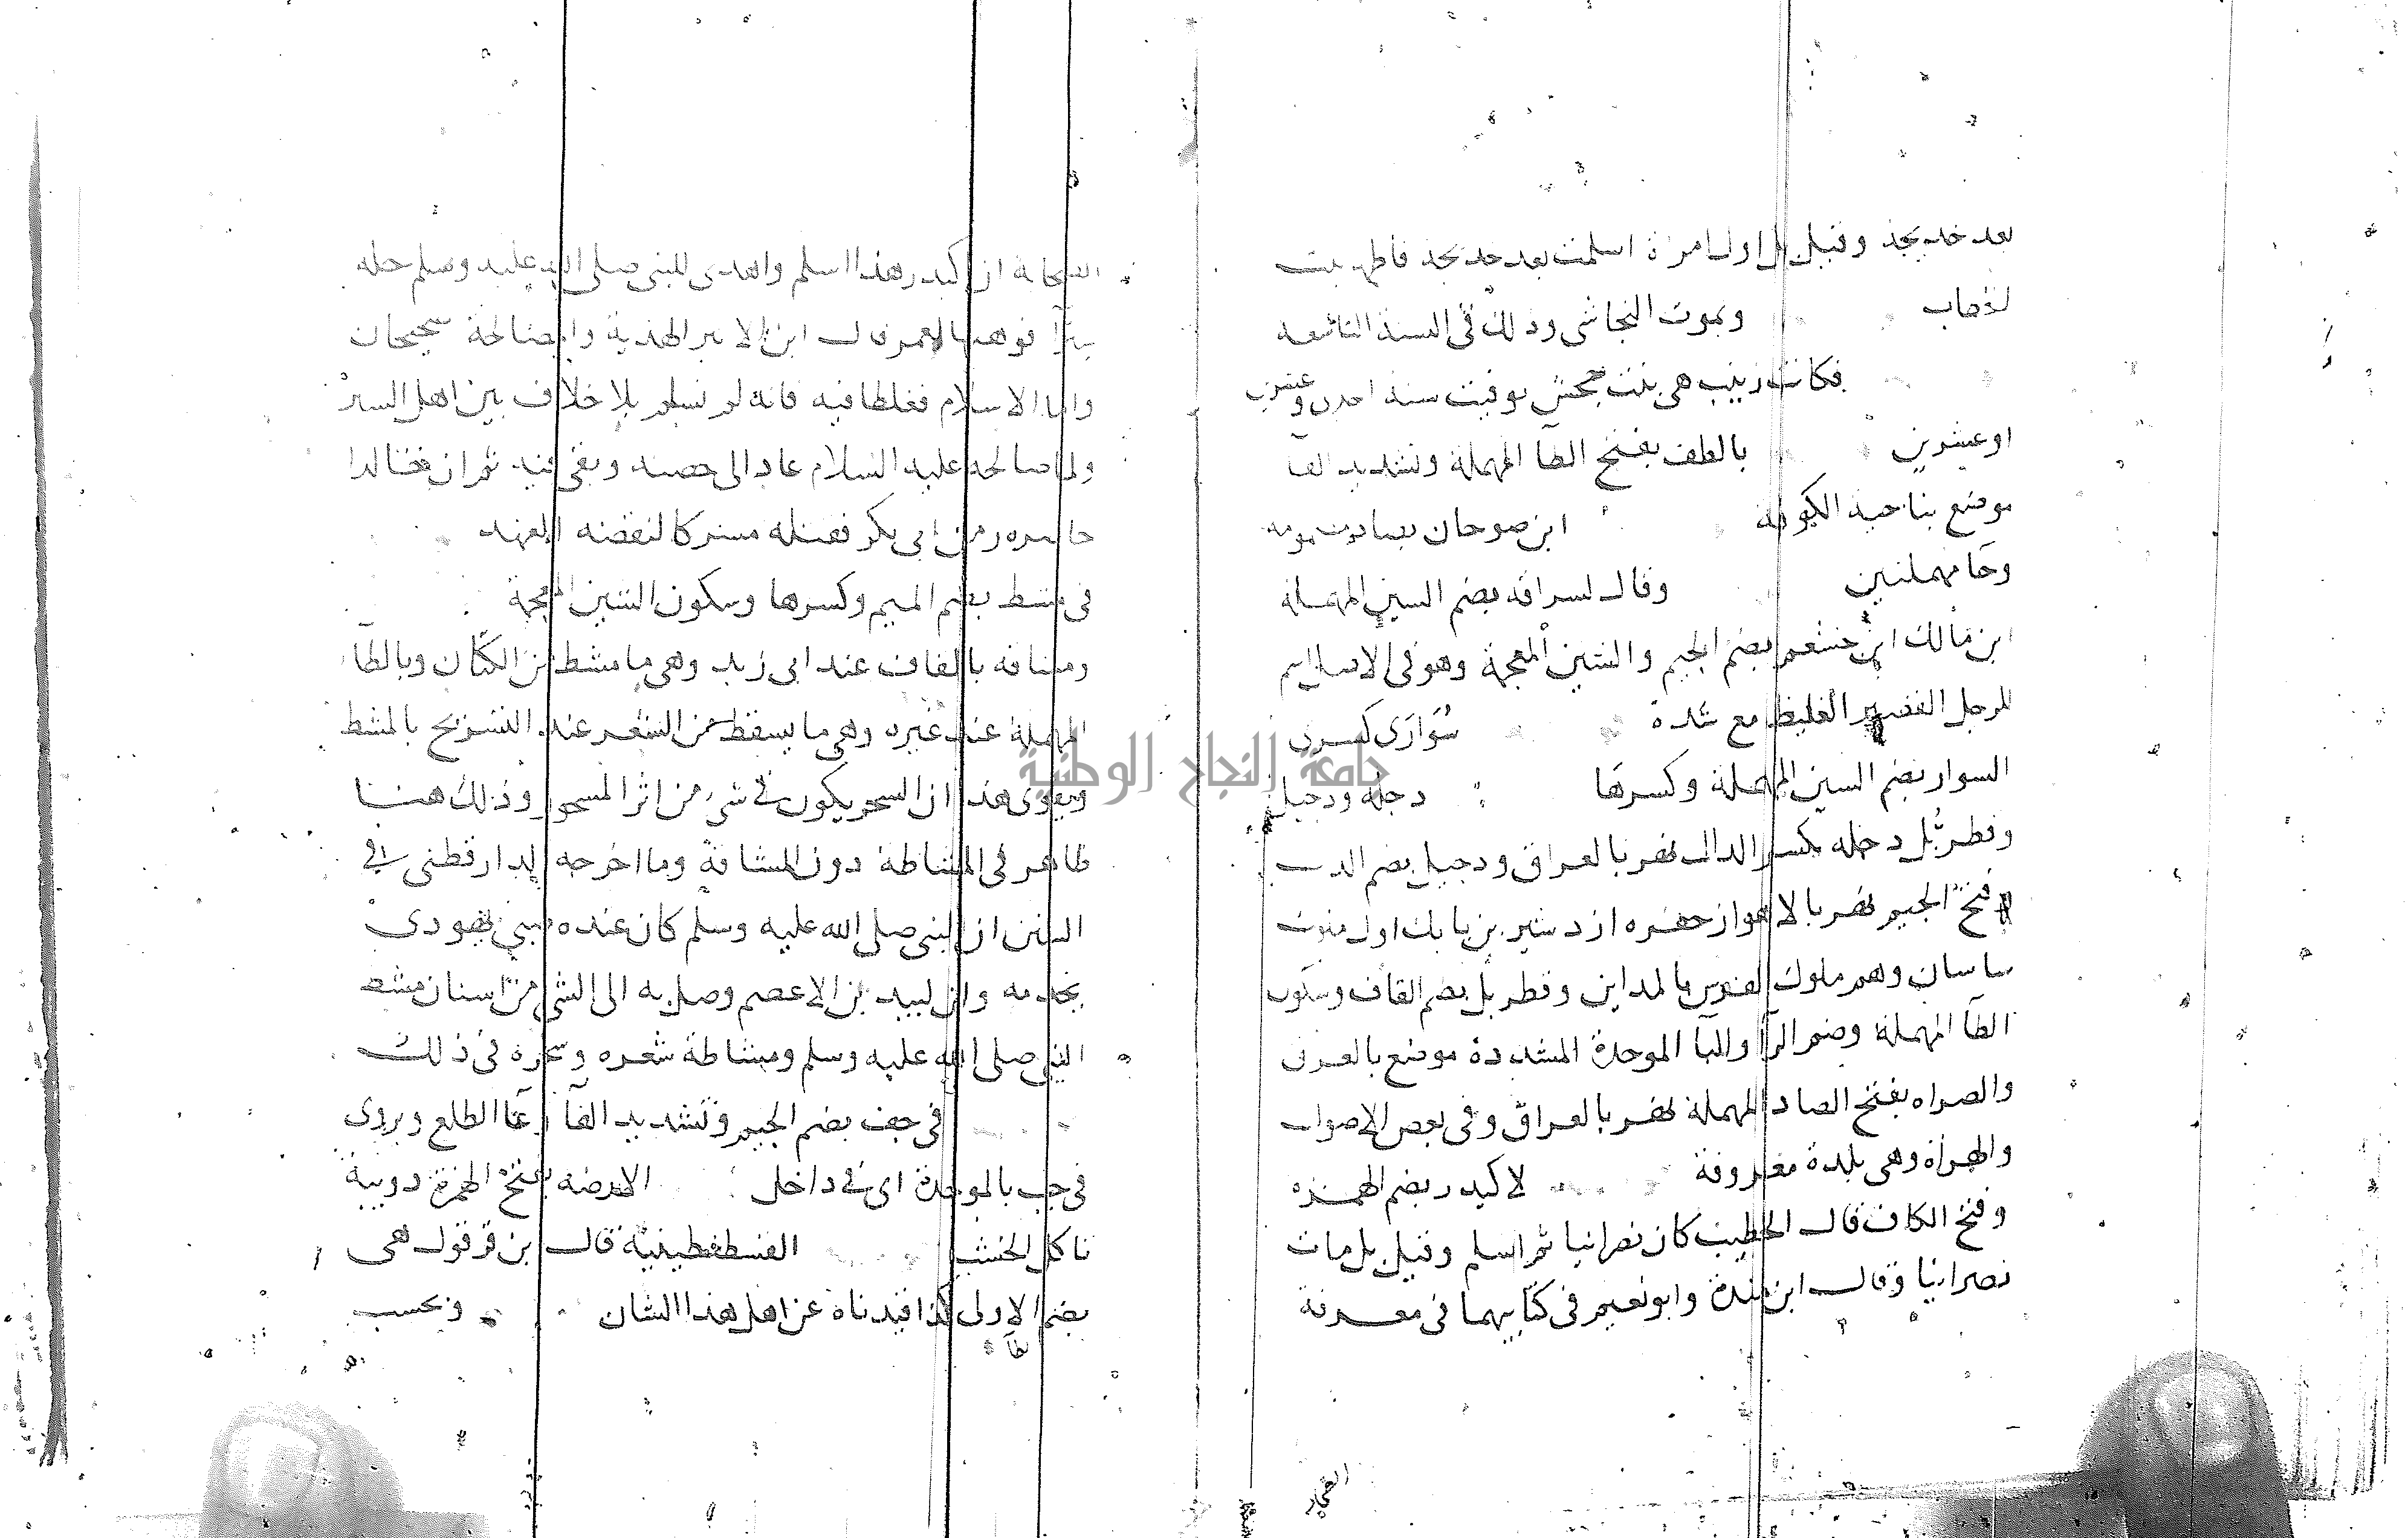 بعد خديجة وقيل بل اول امراة اسلمت بعد خديجة فاطمة بنت
الخطاب وبموت النجاشى وذلك فى السنة التاسعة
فكانت زينب هى بنت جحش توفيت سنة احدى وعشرين
او عشرين بالطف بفتح الطآ المهملة وتشديد الفآ
موضع بناحية الكوفة ابن صوحان بصاد مضمومة
وحآ مهملتين وقال لسراقة بضم السين المهملة
ابن مالك ابن جشعم بضم الجيم والشين المعجمة وهو فى الاصل اسم
للرجل القصير الغليظ مع شدة سُوَارَى كسرى
السوار بضم السين المهملة وكسرها دجلة ودجيل
وقطربُّل دجلة بكسر الدال نهر بالعراق ودجيل بضم الدال
وفتح الجيم نهر بالاهواز حفره ازدشير بن بابك اول ملوك
ساسان وهم ملوك الفرس بالمداين وقطربل بضم القاف وسكون
الطآ المهملة وضم الرآ والبآ الموحدة المشددة موضع بالعراق
والصراه بفتح الصاد المهملة نهر بالعراق وفى بعض الاصول
والهراة وهى بلدة معروفة لاكيدر بضم الهمزه
وفتح الكاف قال الخطيب كان نصرانيا ثم اسلم وقيل بل مات
نصرانيا وقال ابن مندة وابو نعيم فى كتابيهما فى معرفة
الصحابة
الصحابة ان اكيدر هذا اسلم واهدى للنبى صلى الله عليه وسلم حلة
سيرآ فوهبها لعمر قال ابن الاثير الهدية والمصالحة صحيحان
واما الاسلام فغلطا فيه فانه لم يسلم بلا خلاف بين اهل السير
ولما صالحه عليه السلام عاد الى حصنه وبقى فيه ثم ان خالدا
حاصره زمن ابى بكر فقتله مشركا لنقضه العهد
فى مشط بضم الميم وكسرها وسكون الشين المعجمة
ومشاقة بالقاف عند ابى زيد وهى ما مشط من الكتان وبالطآ
المهملة عند غيره وهى ما يسقط من الشعر عند التسريح بالمشط
ويقوى هذا ان السحر يكون فى شى من اثر المسحور وذلك هنا
ظاهر فى المشاطة دون المشاقة وما اخرجه الدارقطنى فى
السنن ان النبى صلى الله عليه وسلم كان عنده صبي يهودى
يخدمه وان لبيد بن الاعصم وصل به الى الشى من اسنان مشط
النبى صلى الله عليه وسلم ومشاطة شعره وسحره فى ذلك
فى جف بضم الجيم وتشديد الفآ وعآ الطلع ويروى
فى جب بالموحدة اى فى داخل الارضة بفتح الهمزة دويبة
تاكل الخشب القسطنطينية قال ابن قرقول هى
بضم الاولى كذا قيدناه عن اهل هذا الشان وبحسب
طآ
جامعة النجاح الوطنية